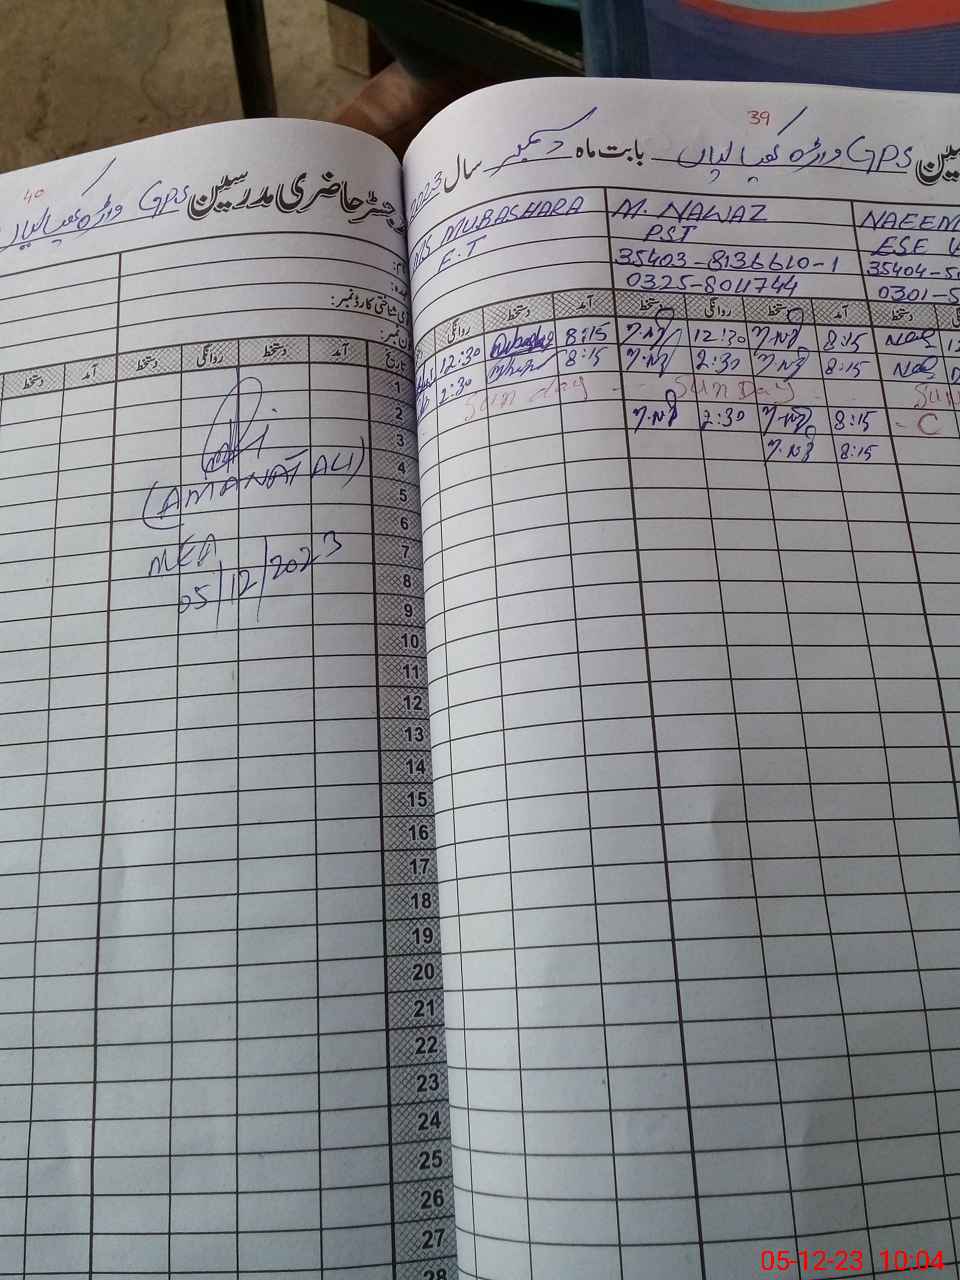 39
GPS واڑہ کھیالیاں بابت ماہ دسمبر سال 2023
MS MUBASHARA
E.T
M. NAWAZ
PST
35403-8136610-1
0325-8041744
NAEEM
ESE
35404-5
0301-5
روانگی دستخط آمد دستخط روانگی دستخط آمد دستخط
12:30 8:15 12:30 8:15
2:30 8:15 2:30 8:15
Sun day Sun Day Sun
2:30 8:15 C
8:15
40
رجسٹر حاضری مدرسین GPS واڑہ کھیالیاں
شناختی کارڈ نمبر:
تاریخ آمد دستخط روانگی دستخط آمد دستخط
1
2
3
4
5
6
7
8
9
10
11
12
13
14
15
16
17
18
19
20
21
22
23
24
25
26
27
28
(AMANAT ALI)
MEA
05/12/2023
05-12-23 10:04